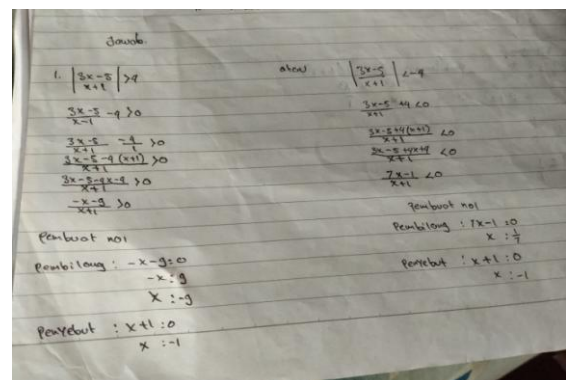 Jawab.
1. |3x-5/x+1| >4
3x-5/x-1 -4 >0
3x-5/x+1 -4/1 >0
3x-5-4(x+1)/x+1 >0
3x-5-4x-4/x+1 >0
-x-9/x+1 >0
Pembuat nol
Pembilang : -x-9=0
-x=9
x :-9
Penyebut : x+1 :0
x :-1
atau |3x-5/x+1| <-4
3x-5/x+1 +4 <0
3x-5+4(x+1)/x+1 <0
3x-5+4x+4/x+1 <0
7x-1/x+1 <0
Pembuat nol
Pembilang : 7x-1 :0
x : 1/7
Penyebut : x+1 :0
x :-1